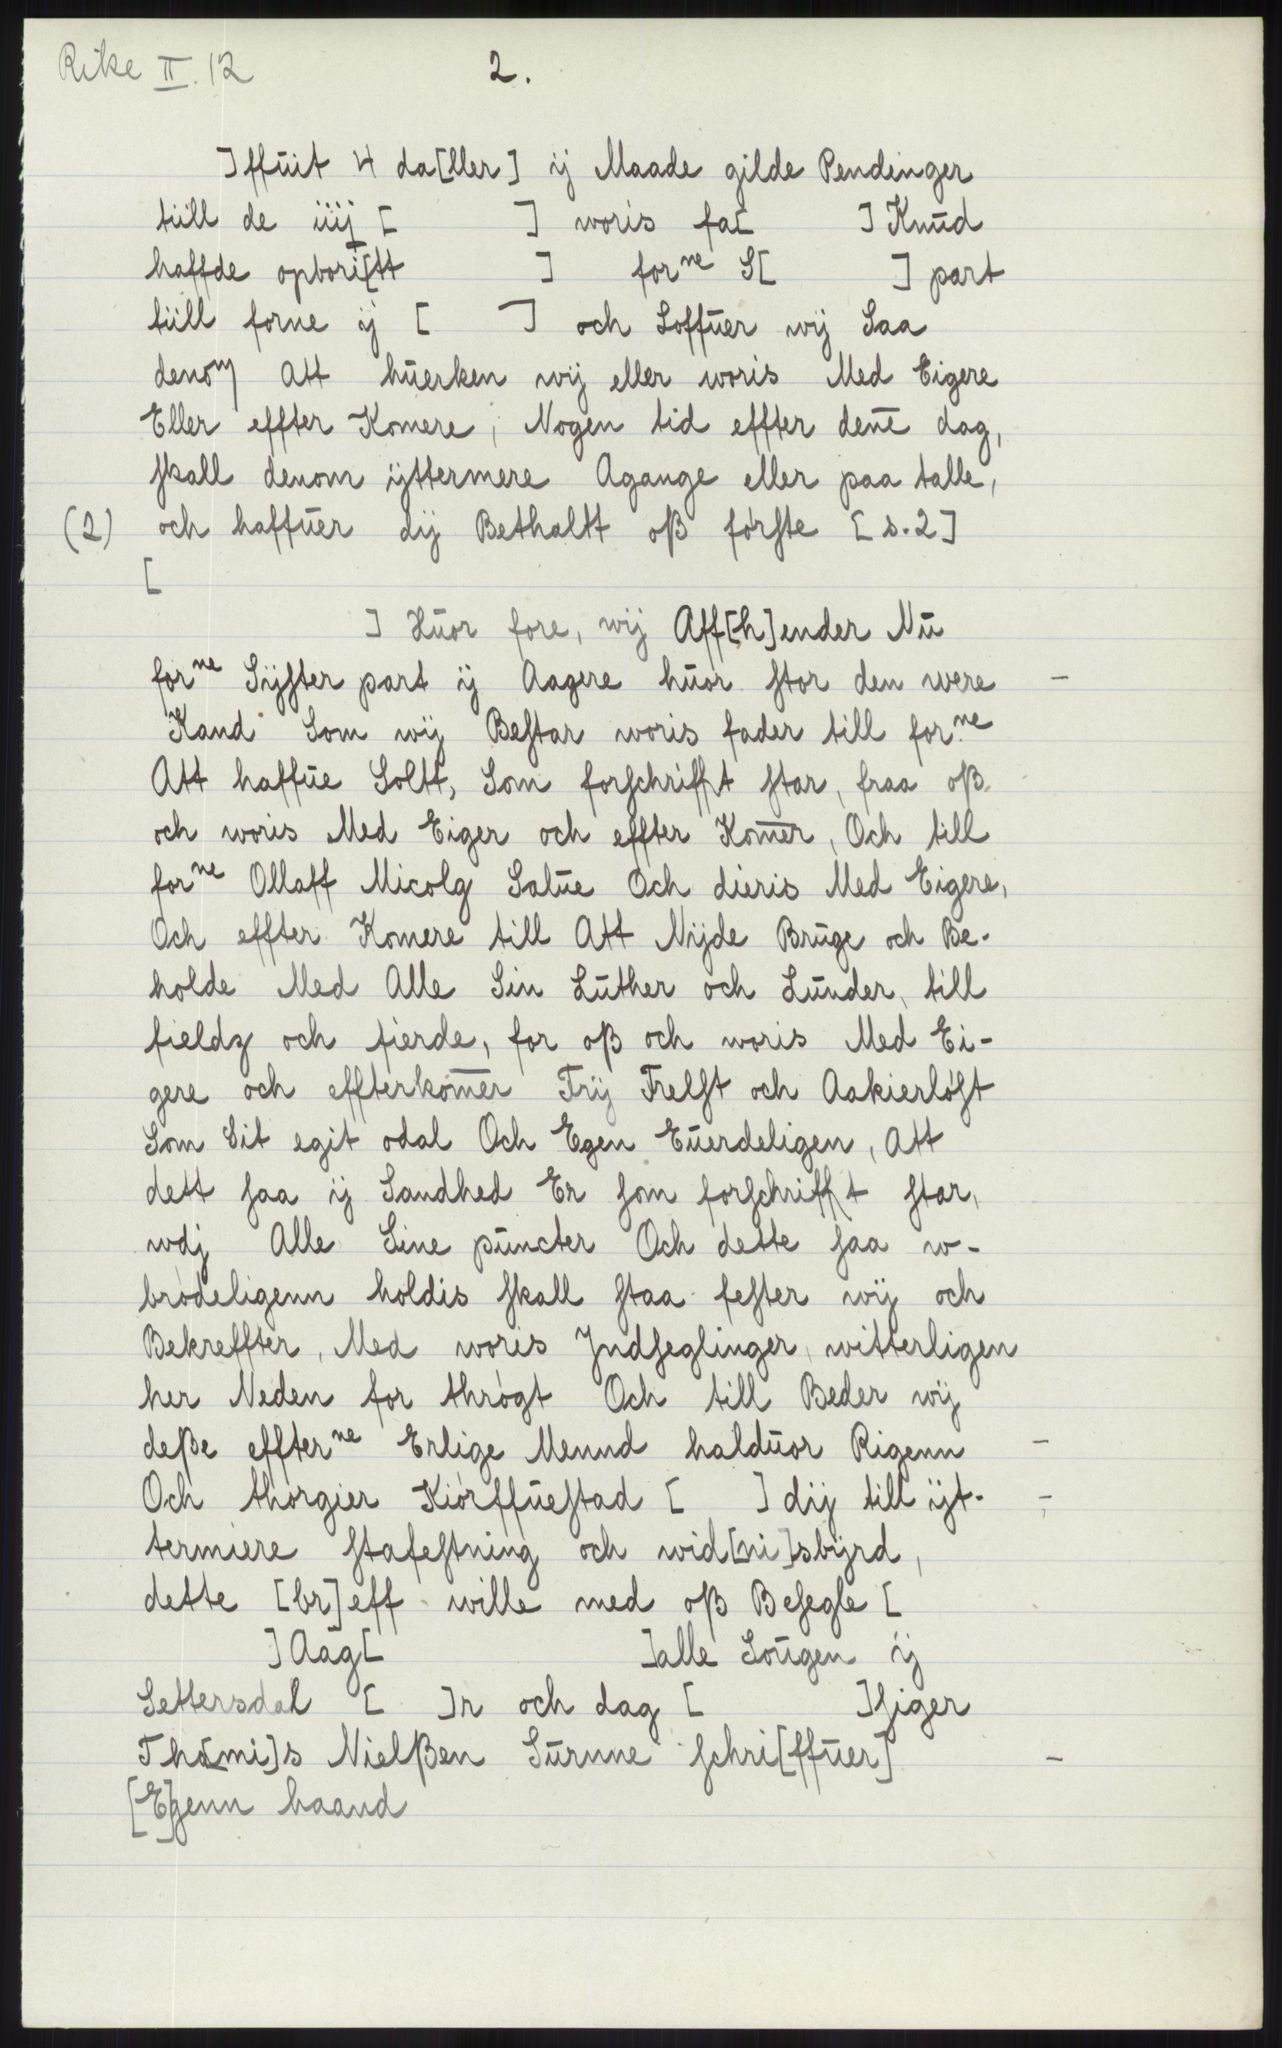 Rike II. 12
2.
]ffuit 4 da[ller] ij Maade gilde Pendinger
tiill de iiij [ ] woris fa[ ] Knud
haffde opbori[tt ] forne S[ ] part
tiill forne ij [ ] och Loffuer wij Saa
denom Att huerken wij eller woris Med Eigere
Eller effter Komere, Nogen tid effter dene dag,
skall denom ijttermere Agange eller paa talle,
(2) och haffuer dij Bethaltt oß første [s.2]
[
] Huor fore, wij Aff[h]ender Nu
forne Sijster part ij Aagere huor stor den were –
Kand Som wij Bestar woris fader till forne
Att haffue Soltt, Som forschrifft star, fraa oß
och woris Med Eiger och effter Komer, Och till
forne Ollaff Micolg Salue Och dieris Med Eigere,
Och effter Komere till Att Nijde Bruge och Be-
holde Med Alle Sin Luther och Lunder, till
fieldz och fierde, for oß och woris Med Ei-
gere och effterkomer Frij Frelst och Aakierløst
Som Sit egit odal Och Egen Euerdeligen, Att
dett saa ij Sandhed Er som forschrifft star,
wdj Alle Sine puncter Och dette saa w-
brødeligenn holdis skall staa fester wij och
Bekreffter, Med woris Jndseglinger, witterligen
her Neden for thrøgt Och till Beder wij
deße effterne Erlige Mennd halduor Rigenn –
Och thorgier Kiørffuestad [ ] dij till ijt- –
termiere stafestning och wid[ni]sbijrd,
dette [br]eff wille med oß Besegle [
] Aag[ ]alle Sougen ij
Settersdal [ ]r och dag [ ]siger
Tho[mi]s Nielßen Surnne schri[ffuer] –
[E]genn haand